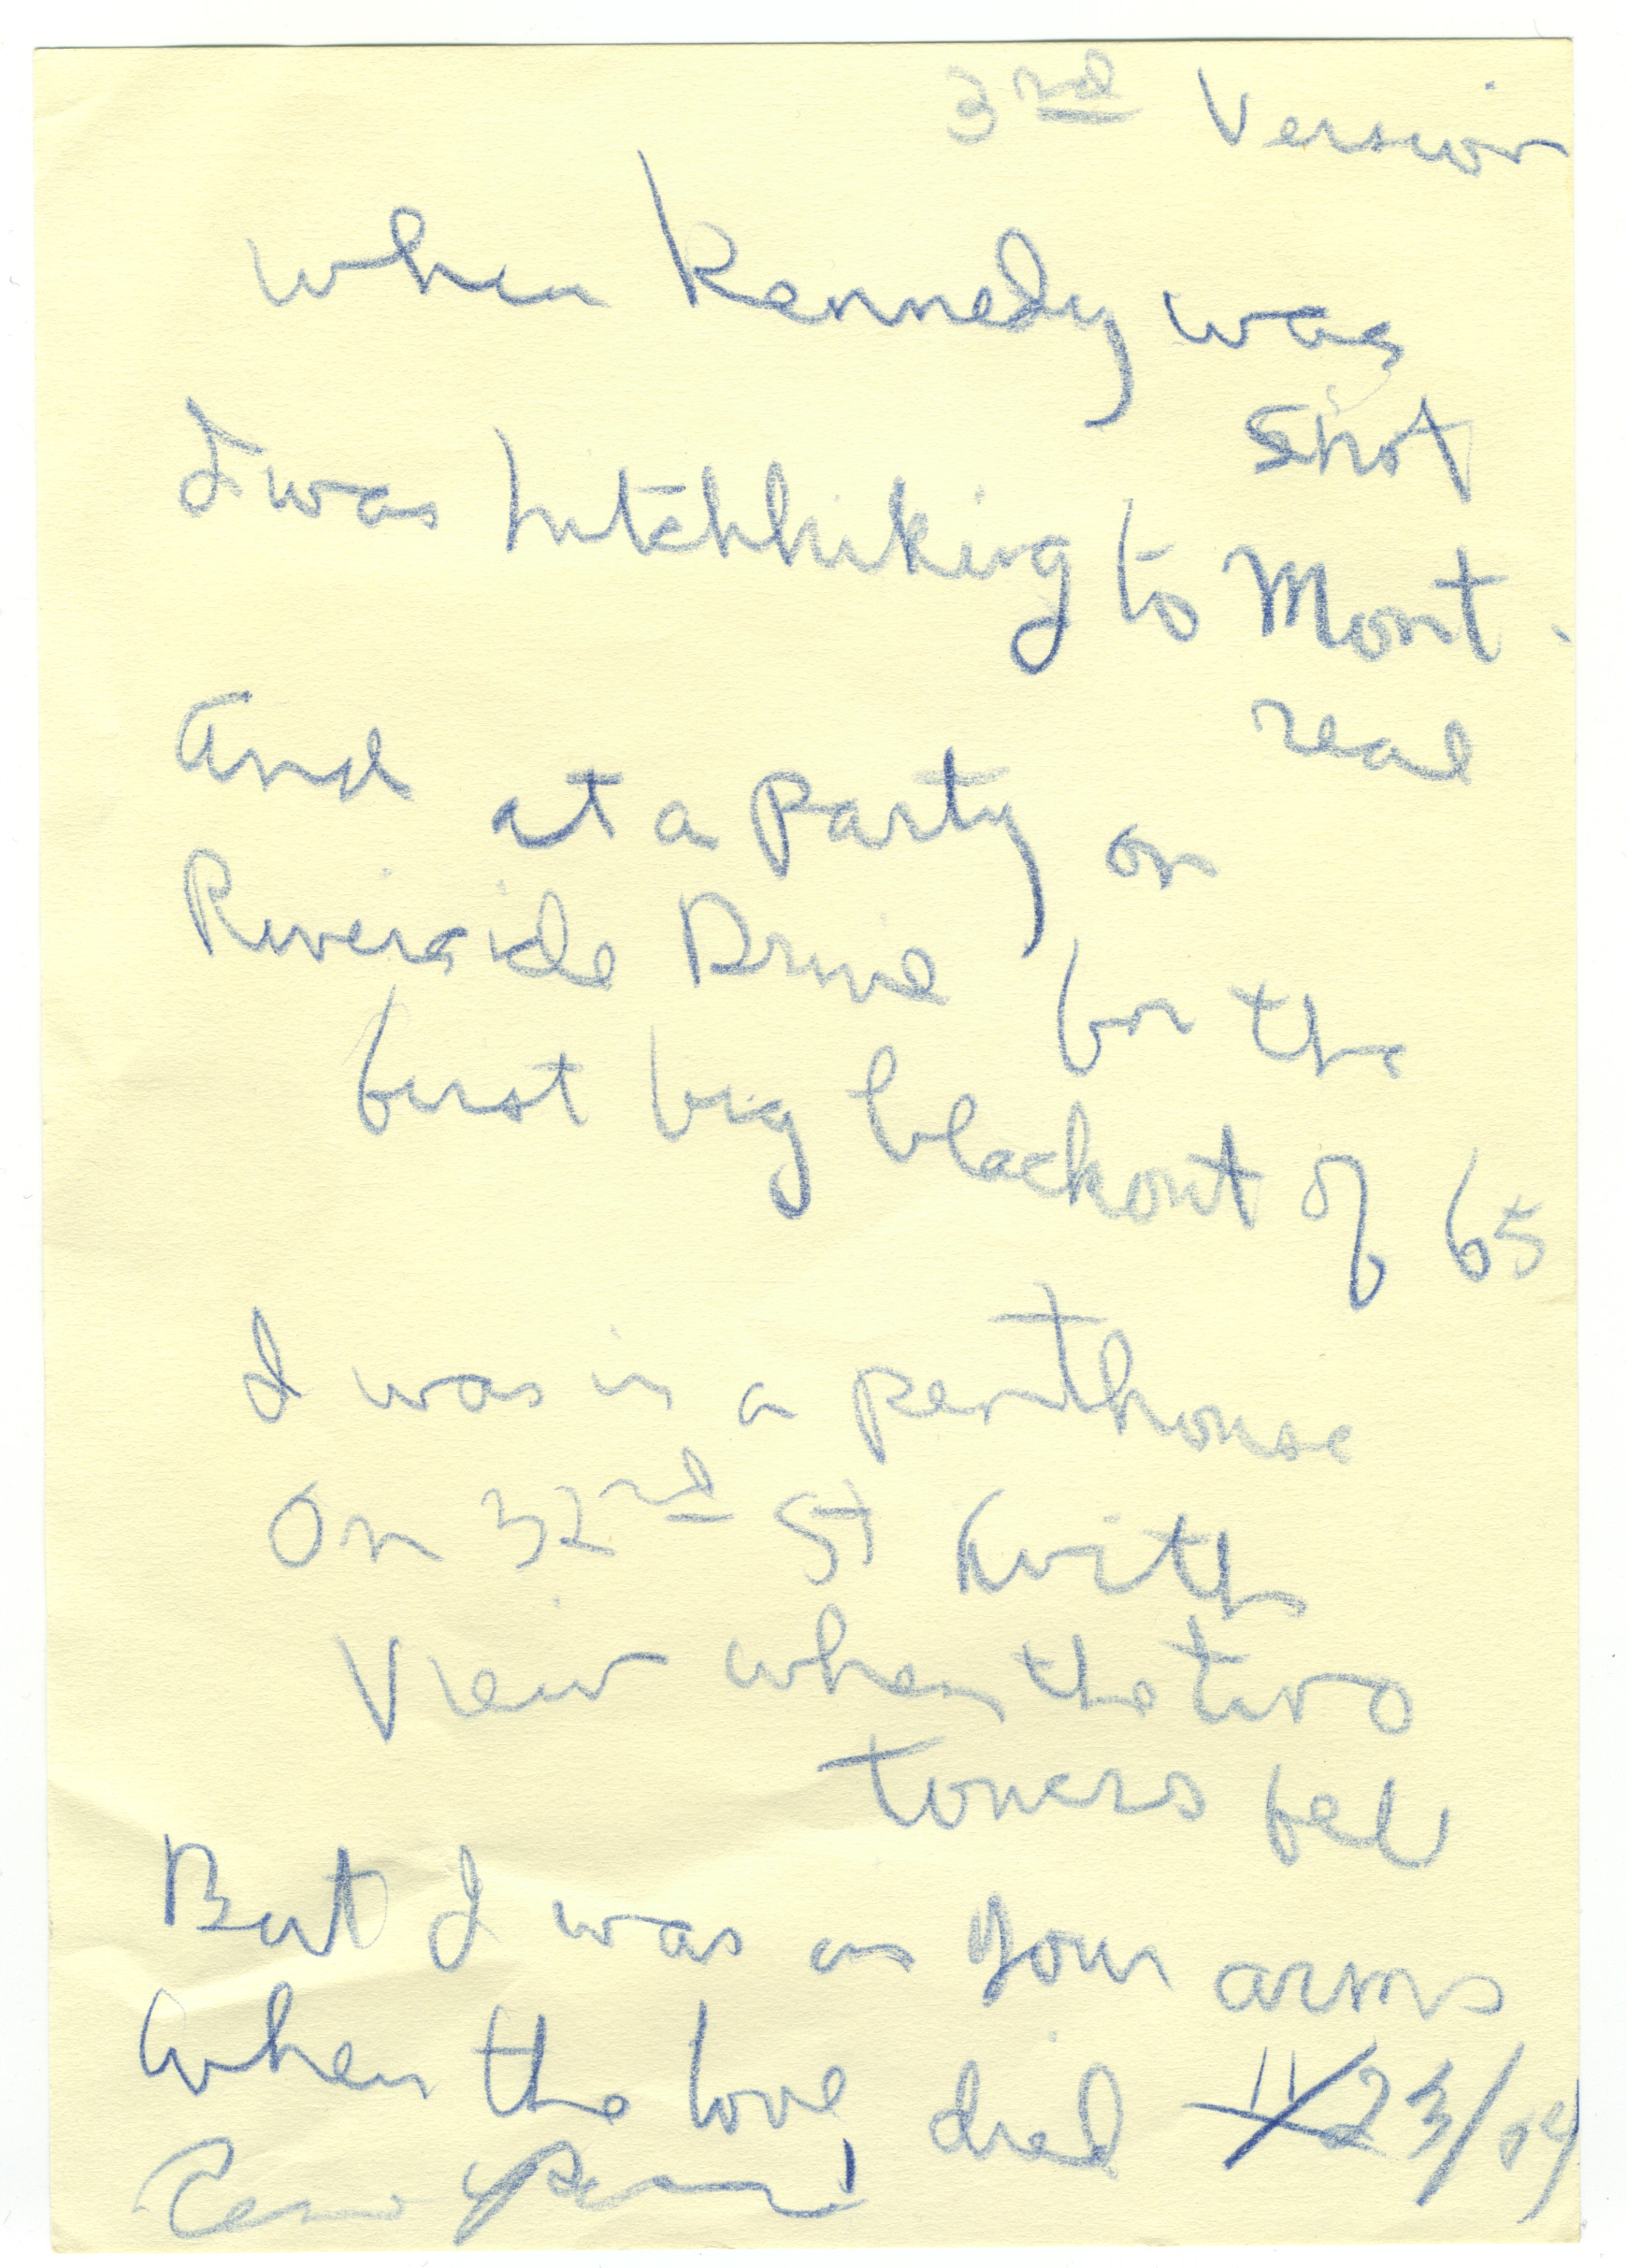 3rd Version
when Kennedy was
shot
I was hitchhiking to Mont-
real
and at a party on
Riverside Drive for the
first big blackout of 65
I was in a penthouse
On 32nd St with
View when the two
towers fell
But I was in your arms
When the love died 11/23/04